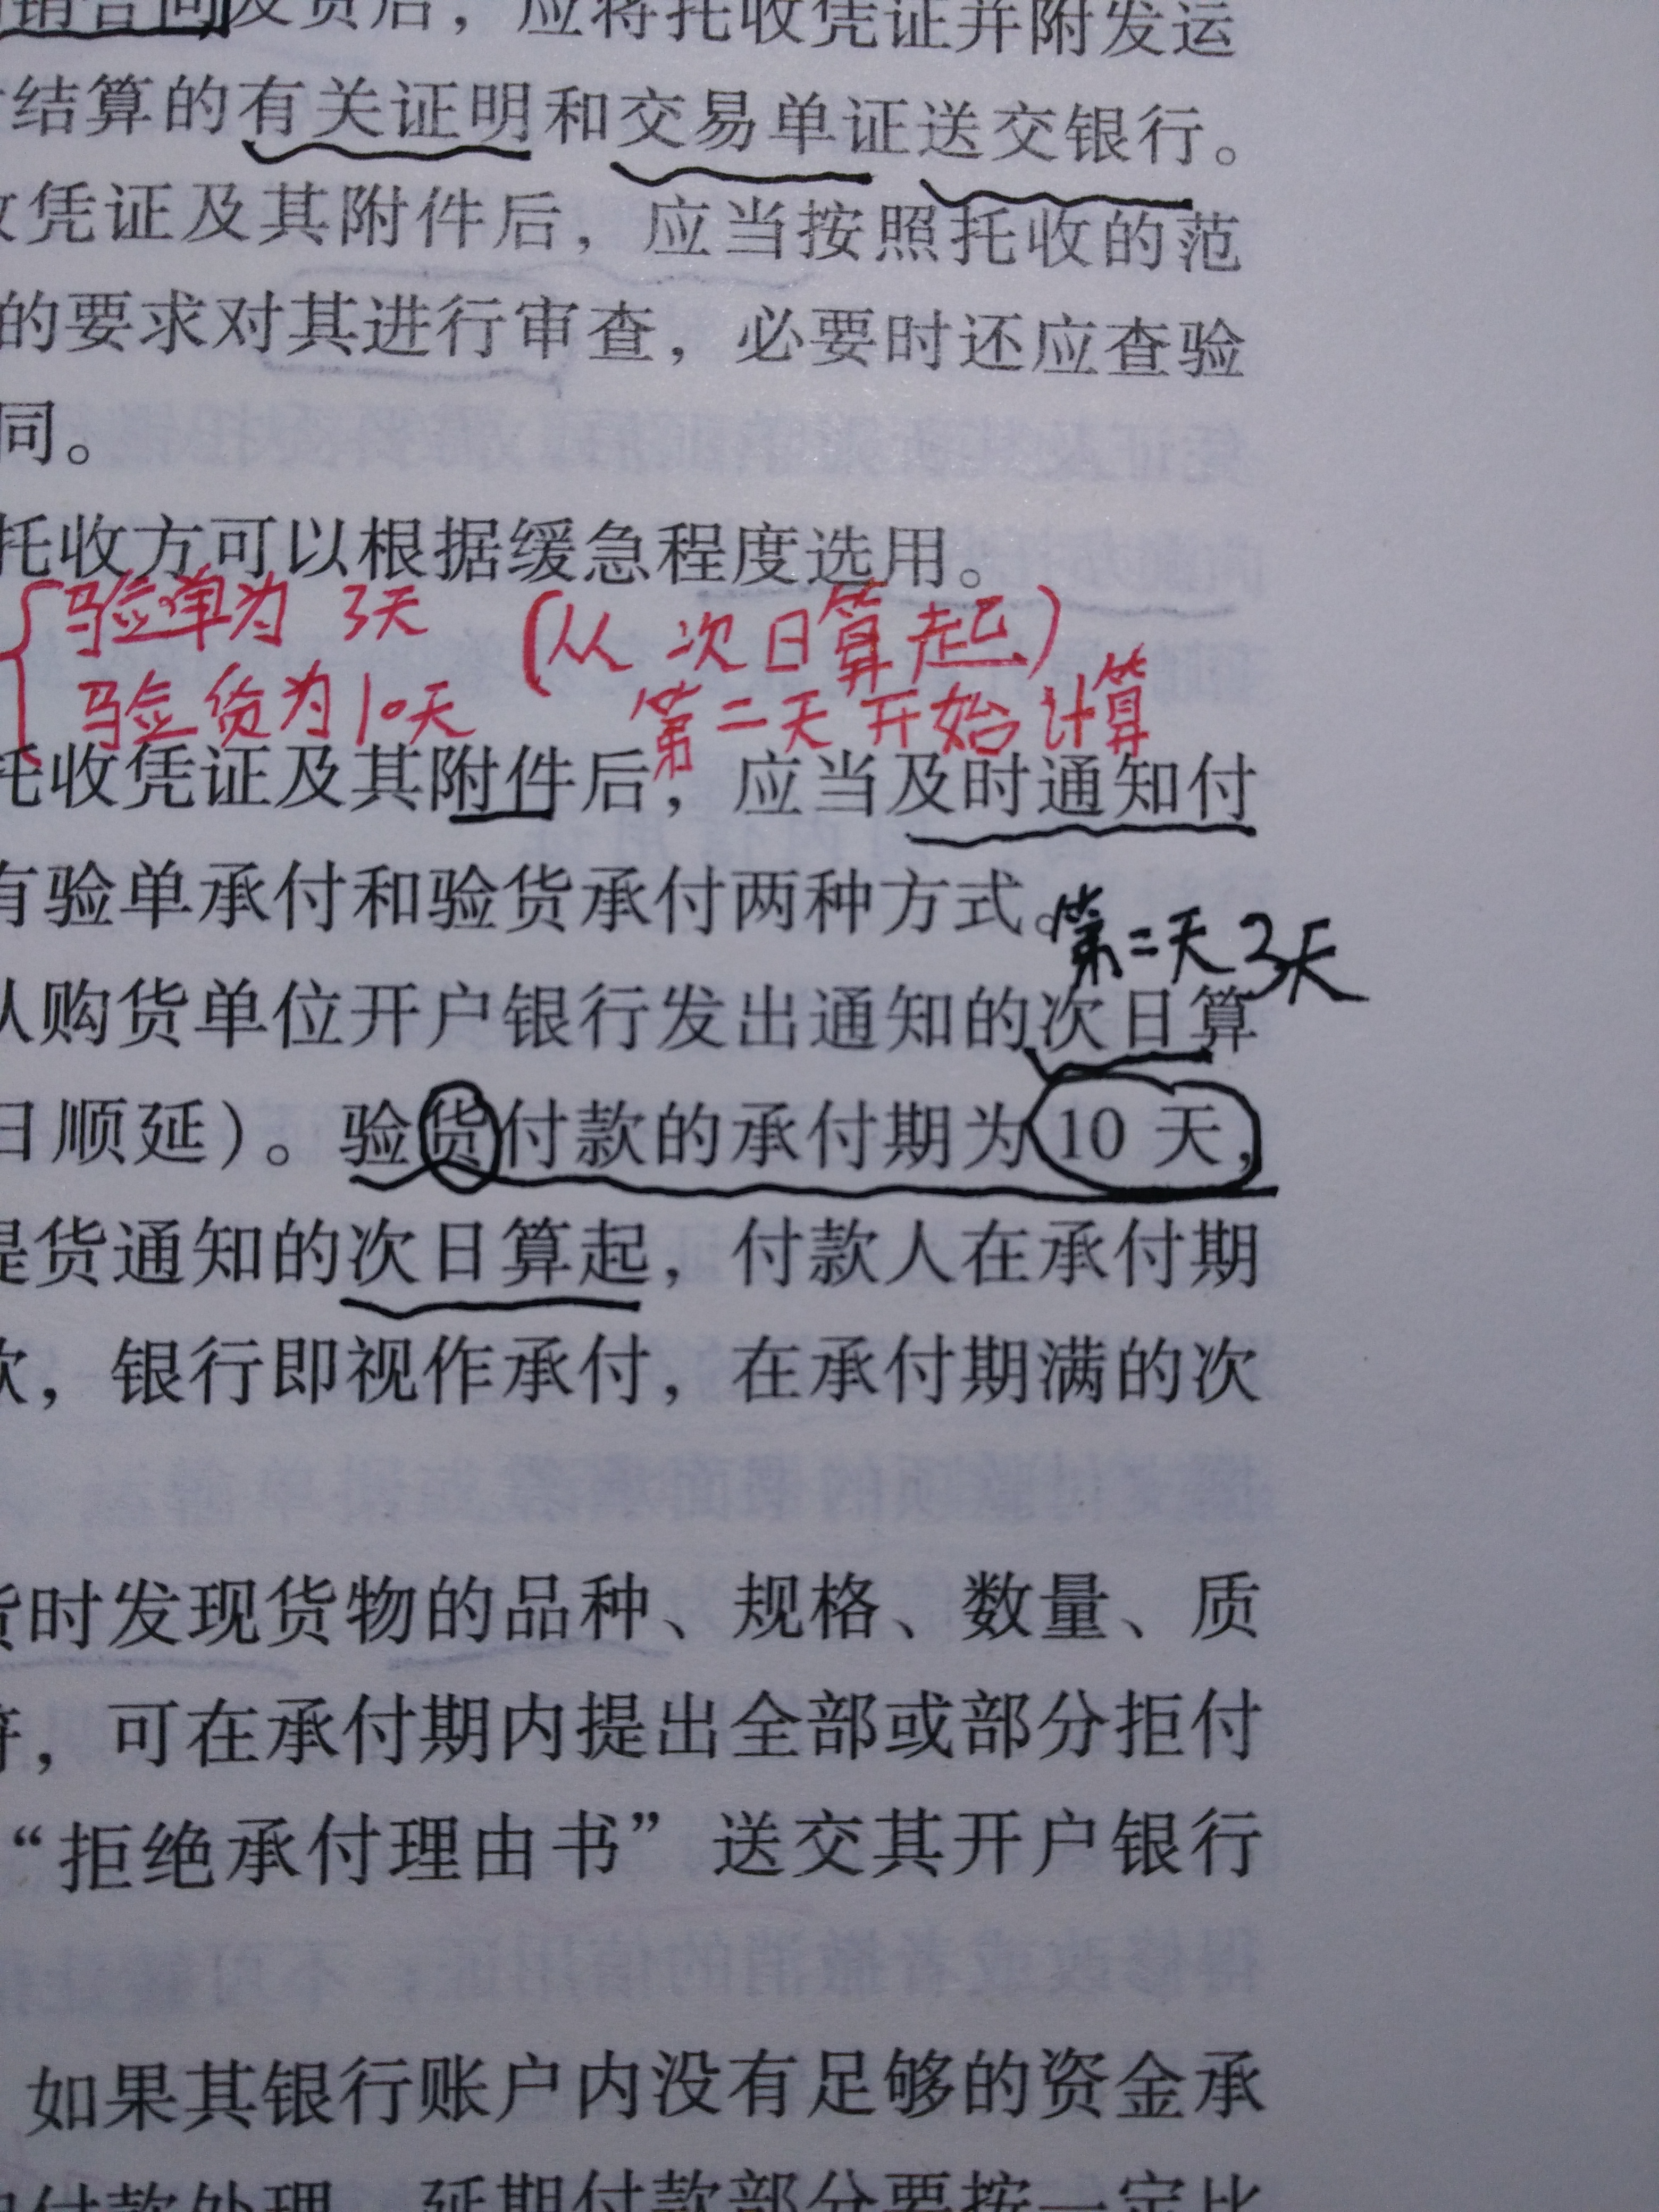 销合同发货后，应将托收凭证并附发运
结算的有关证明和交易单证送交银行。
凭证及其附件后，应当按照托收的范
的要求对其进行审查，必要时还应查验
同。
托收方可以根据缓急程度选用。
验单为 3天 (从次日算起)
验货为10天 第二天开始计算
托收凭证及其附件后，应当及时通知付
有验单承付和验货承付两种方式。
第二天 3天
从购货单位开户银行发出通知的次日算
日顺延）。验货付款的承付期为 10 天，
提货通知的次日算起，付款人在承付期
款，银行即视作承付，在承付期满的次
货时发现货物的品种、规格、数量、质
符，可在承付期内提出全部或部分拒付
“拒绝承付理由书”送交其开户银行
如果其银行账户内没有足够的资金承
付款处理，延期付款部分要按一定比